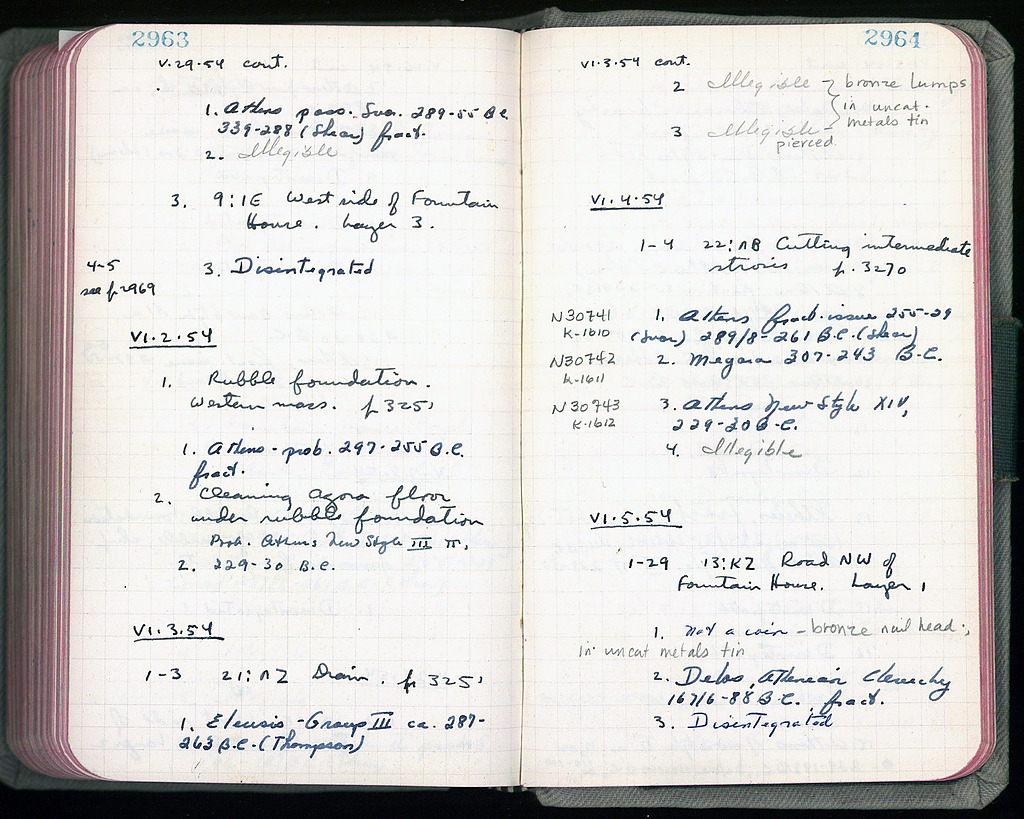 2963
V.29.54 cont.
1. Athens poss. Svo. 289-55 B.C.
339-288 (Shear) fract.
2. Illegible
3. 9:1E West side of Fountain
House. Layer 3.
4-5
see p. 2969
3. Disintegrated
VI.2.54
1. Rubble foundation.
Western mass. p 325
1. Athens - prob. 297-255 B.C.
fract.
2. Cleaning agora floor
under rubble foundation
Prob. Athens New Style III
2. 229-30 B.C.
VI.3.54
1-3 21: Drain. p 325
1. Eleusis - Group III ca. 287-
263 B.C. (Thompson)
2964
VI.3.54 cont.
2 Illegible } bronze lumps
in uncat.
metals tin
3 Illegible -
pierced
VI.4.54
1-4 22: Cutting intermediate
stroses p. 3270
N30741
K-1610
1. Athens fract. issue 255-29
(Svor) 289/8-261 B.C. (Shear)
N30742
K-1611
2. Megara 307-243 B.C.
N30743
K-1612
3. Athens New Style XIV,
229-30 B.C.
4. Illegible
VI.5.54
1-29 13:KZ Road NW of
Fountain House. Layer 1
1. Not a coin - bronze nail head;
in uncat metals tin
2. Delos, Athenian Cleruchy
167/6-88 B.C. fract.
3. Disintegrated